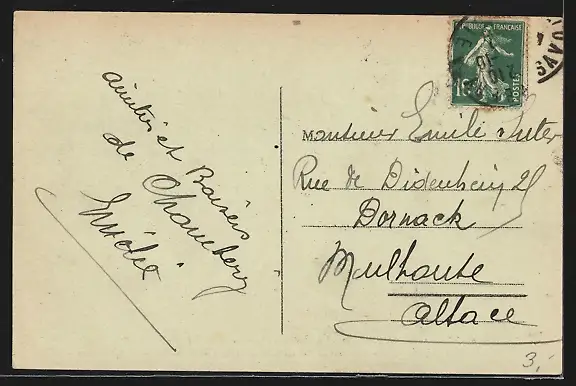 amitiés et Baisers
de Chambéry
Emilie
REPUBLIQUE FRANÇAISE
POSTES
SAVOI
MONSIEUR Emile Suter
Rue de Didenheim 25
Dornack
Mulhouse
Alsace
3,-